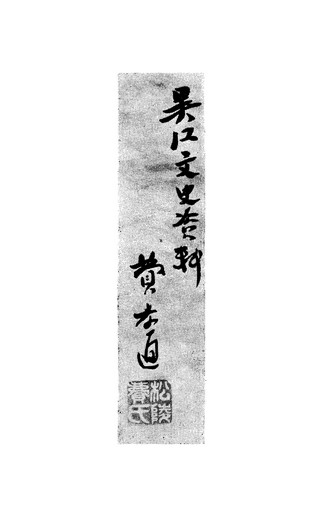 吴江文史资料
费孝通
松陵
費氏